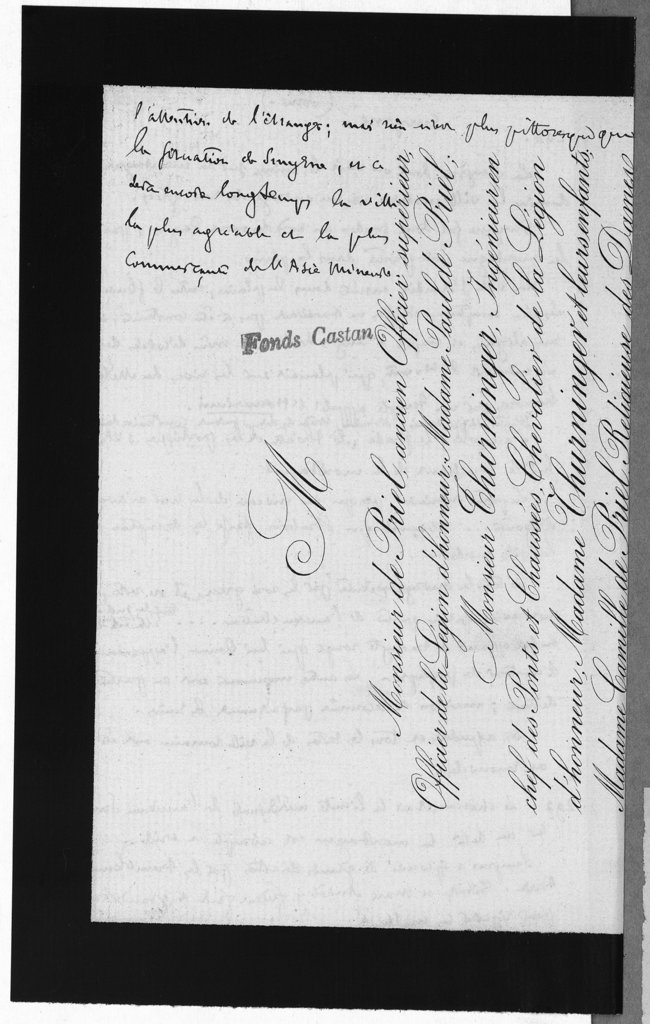 l'attention de l'étranger; mais rien plus pittoresque que
la situation de Smyrne, et ce
sera encore longtemps la ville
la plus agréable et la plus
commerçante de l'Asie Mineure.
Fonds Castan
M
Monsieur de Priel, ancien Officier supérieur,
Officier de la Légion d'honneur, Madame Paul de Priel;
Monsieur Thurninger, Ingénieur en
chef des Ponts et Chaussées, Chevalier de la Légion
d'honneur, Madame Thurninger et leurs enfants;
Madame Camille de Priel, Religieuse des Dames